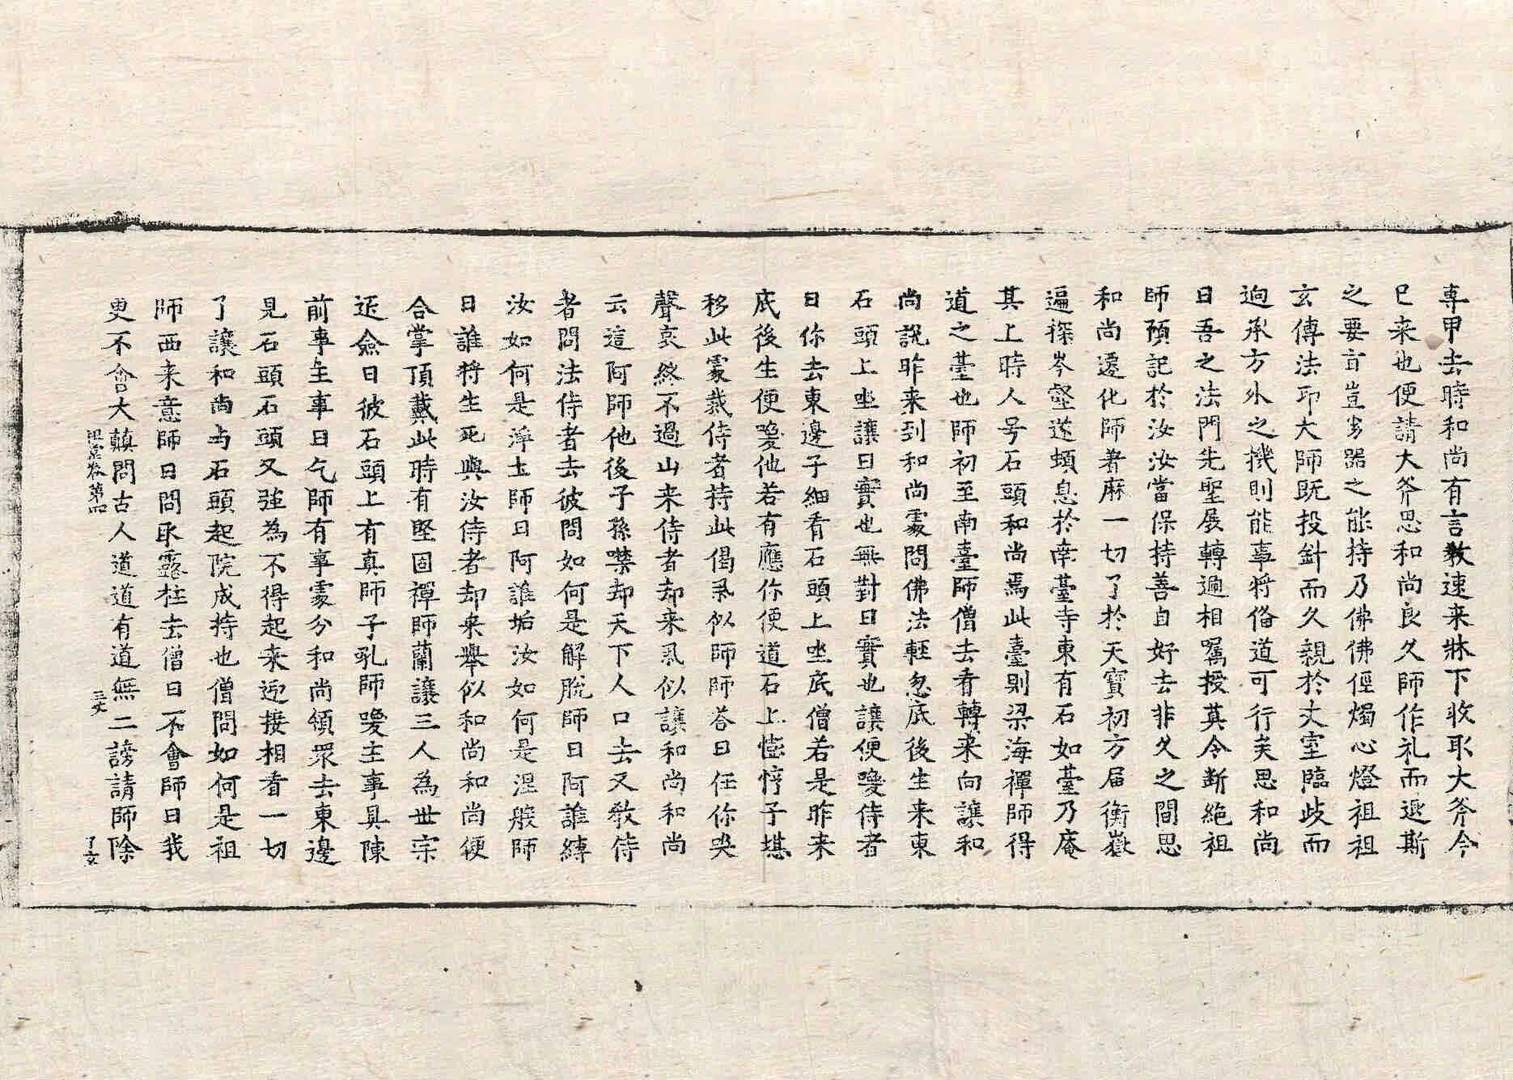 専甲去時和尚有言教速来床下收取大斧今
已来也便請大斧思和尚良久師作礼而退斯
之要旨豈劣器之能持乃佛佛俓燭心燈祖祖
玄傳法印大師旣投針而久親於丈室臨歧而
逈承方外之機則能事將俻道可行矣思和尚
曰吾之法門先聖展轉逓相囑授莫令断絶祖
師預記於汝汝當保持善自好去非久之間思
和尚遷化師着麻一切了於天寶初方届衡嶽
遍探岑壑遂頓息於南臺寺東有石如臺乃庵
其上時人号石頭和尚焉此臺則梁海禪師得
道之臺也師初至南臺師僧去看轉来向讓和
尚說昨来到和尚處問佛法輕忽底後生来東
石頭上坐讓曰實也無對曰實也讓便喚侍者
曰你去東邊子細看石頭上坐底僧若是昨来
底後生便喚他若有應你便道石上憽悙子堪
移此處裁侍者持此偈舉似師師荅曰任你哭
聲哀終不過山来侍者却来舉似讓和尚和尚
云這阿師他後子孫噤却天下人口去又教侍
者問法侍者去彼問如何是解脫師曰阿誰縛
汝如何是淨土師曰阿誰垢汝如何是涅般師
曰誰將生死與汝侍者却来舉似和尚和尚便
合掌頂戴此時有堅固禪師蘭讓三人為世宗
近僉曰彼石頭上有真師子吼師喚主事具陳
前事主事曰乞師有事處分和尚領衆去東邊
見石頭石頭又强為不得起来迎接相看一切
了讓和尚与石頭起院成持也僧問如何是祖
師西来意師曰問取露柱去僧曰不會師曰我
更不會大顚問古人道道有道無二謗請師除
祖堂卷第四 三丈 了丈